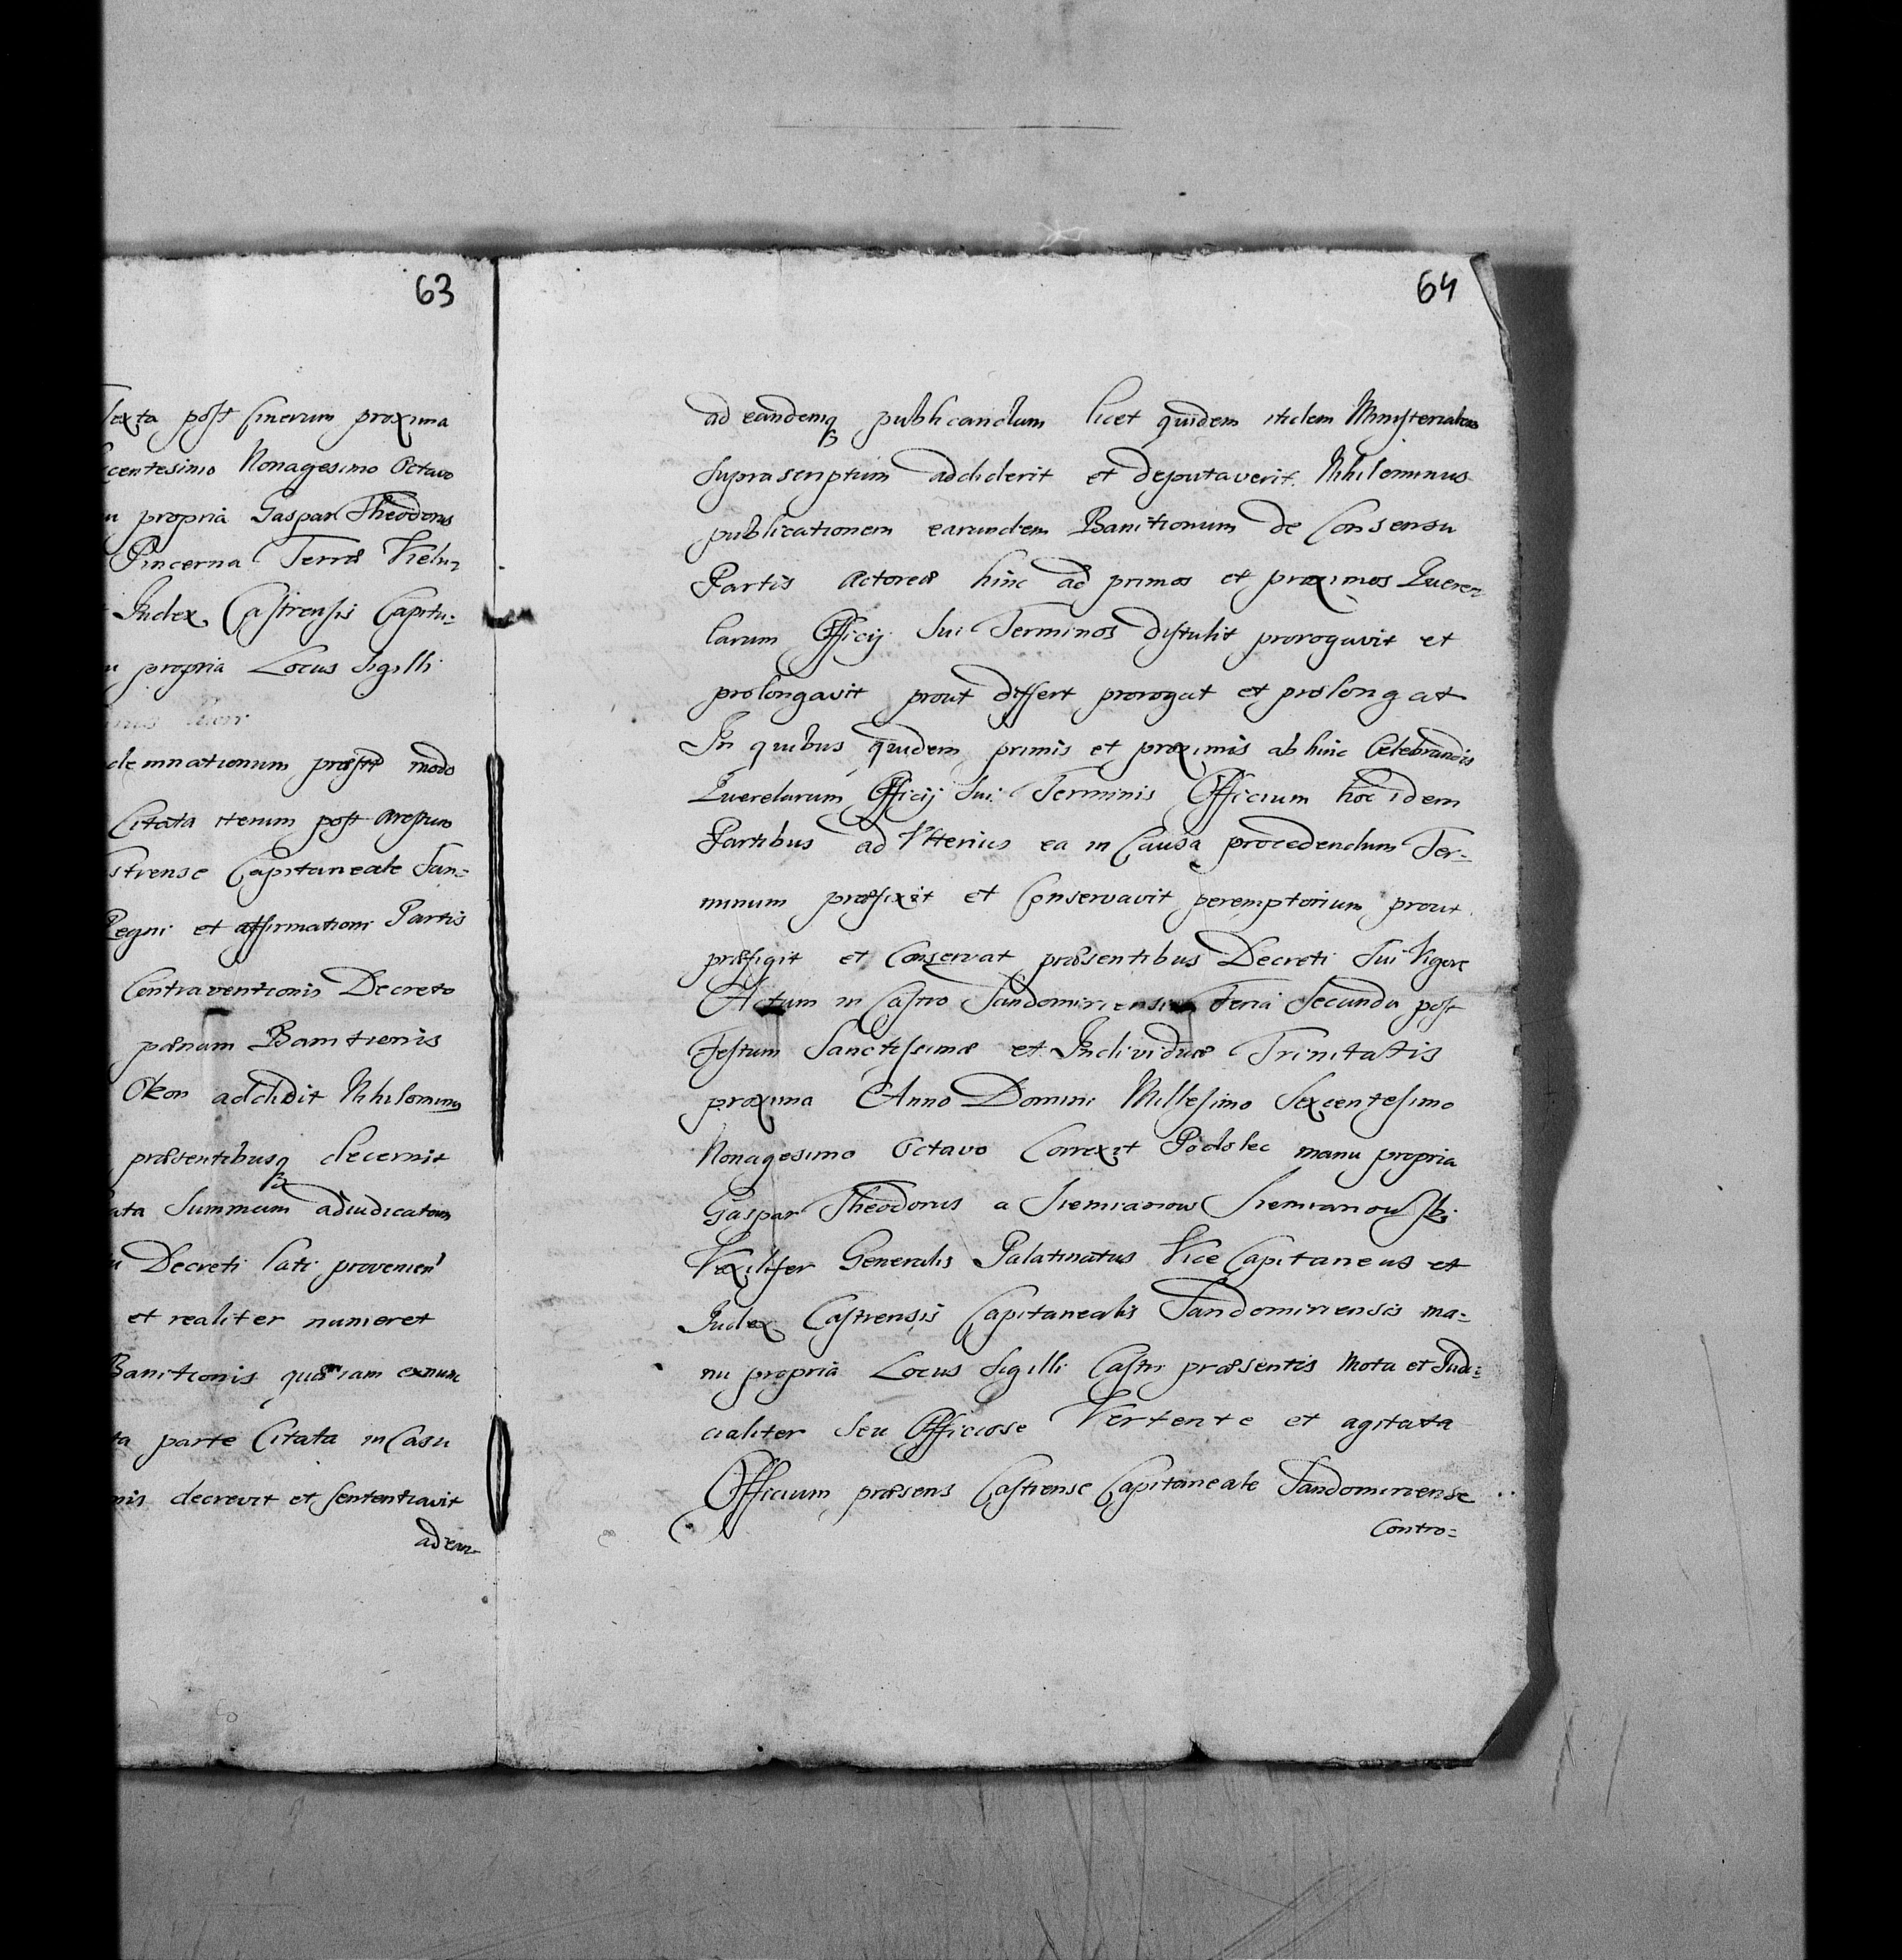 63
Sexta post Cinerum proxima
centesimo Nonagesimo Octavo
propria Gaspar Theodorus
Pincerna Terræ Vielu
Judex Castrensis Capitu=
propria Locus Sigilli
demnationum modo
Citata iterum post
strense Capitaneale San=
Regni et affirmationi Partis
Contraventionis Decreto
pænam Banitionis
Okon addidit Nihilominus
præsentibusq decernit
Summam adiudicatam
Decreti lati provenien
et realiter numeret
Banitionis quam iam exnunc
ta parte Citata in Casu
nis decrevit et sententiavit
ad ean=
64
ad eandemq publicandum licet quidem itidem Ministerialem
suprascriptum addiderit et deputaverit. Nihilominus
publicationem earundem Banitionum de Consensu
Partis Actoreæ hinc ad primos et proximos Quere=
larum Officij Sui Terminos distulit prorogavit et
prolongavit prout differt prorogat et prolongat
In quibus quidem primis et proximis ab hinc Celebrandis
Querelarum Officij Sui Terminis Officium hoc idem
Partibus ad Vlterius ea in Causa procedendum Ter=
minum præfixit et Conservavit peremptorium prout
præfigit et Conservat præsentibus Decreti Sui Vigore
Actum in Castro Sandomiriensi Feria Secunda post
Festum Sanctissimæ et Individuæ Trinitatis
proxima Anno Domini Millesimo Sexcentesimo
Nonagesimo Octavo Correxit Podolec manu propria
Gaspar Theodorus a Siemianow Siemianowski
Vexilifer Generalis Palatinatus Vice Capitaneus et
Judex Castrensis Capitanealis Sandomiriensis ma=
nu propria Locus Sigilli Castri præsentis Mota et Judi=
cialiter seu Officiose Vertente et agitata
Officium præsens Castrense Capitaneale Sandomiriense
Contro=